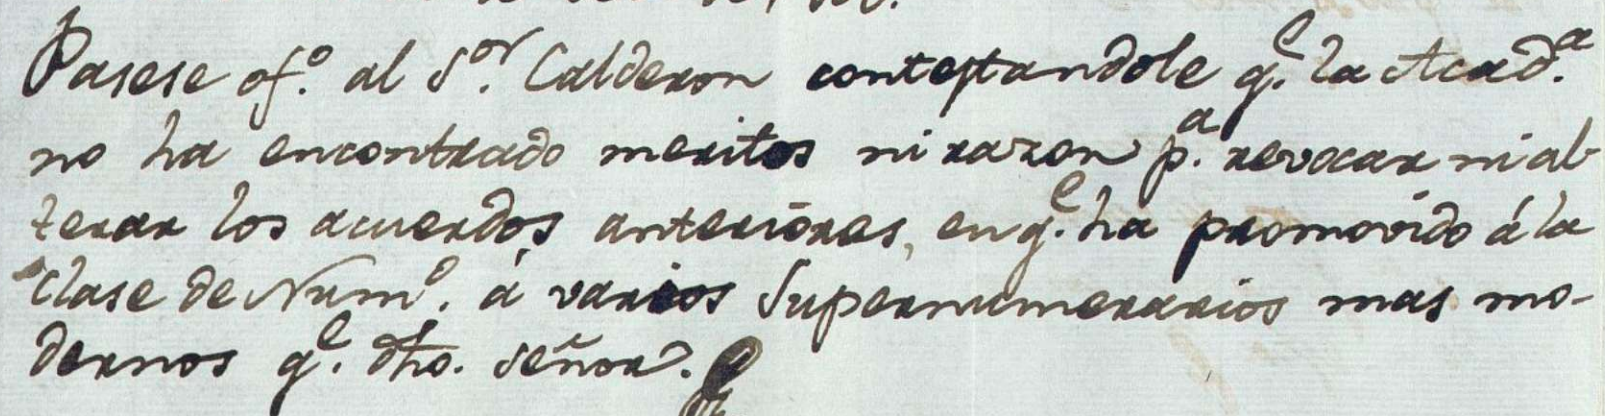 Pasese of.º al S.ºr Calderon contestandole q.e la Acad.a
no ha encontrado meritos ni razon p.a revocar ni al-
terar los acuerdos anteriores, en q.e ha promovido á la
Clase de Num.º á varios Supernumerarios mas mo-
dernos q.e dho. Señor.